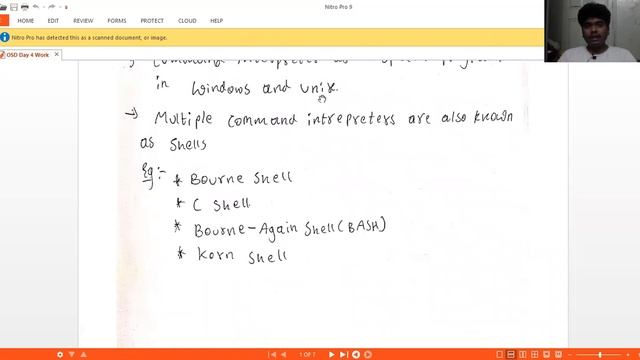 Nitro Pro 9
FILE HOME REVIEW FORMS PROTECT CONVERT SHARE HELP
Nitro Pro has detected this as a scanned document, or image.
OSD Day 4 Work
in Windows and unix.
→ Multiple command intrepreters are also known
as shells
Eg:- * Bourne shell
* C shell
* Bourne-Again shell (BASH)
* Korn shell
1 OF 7